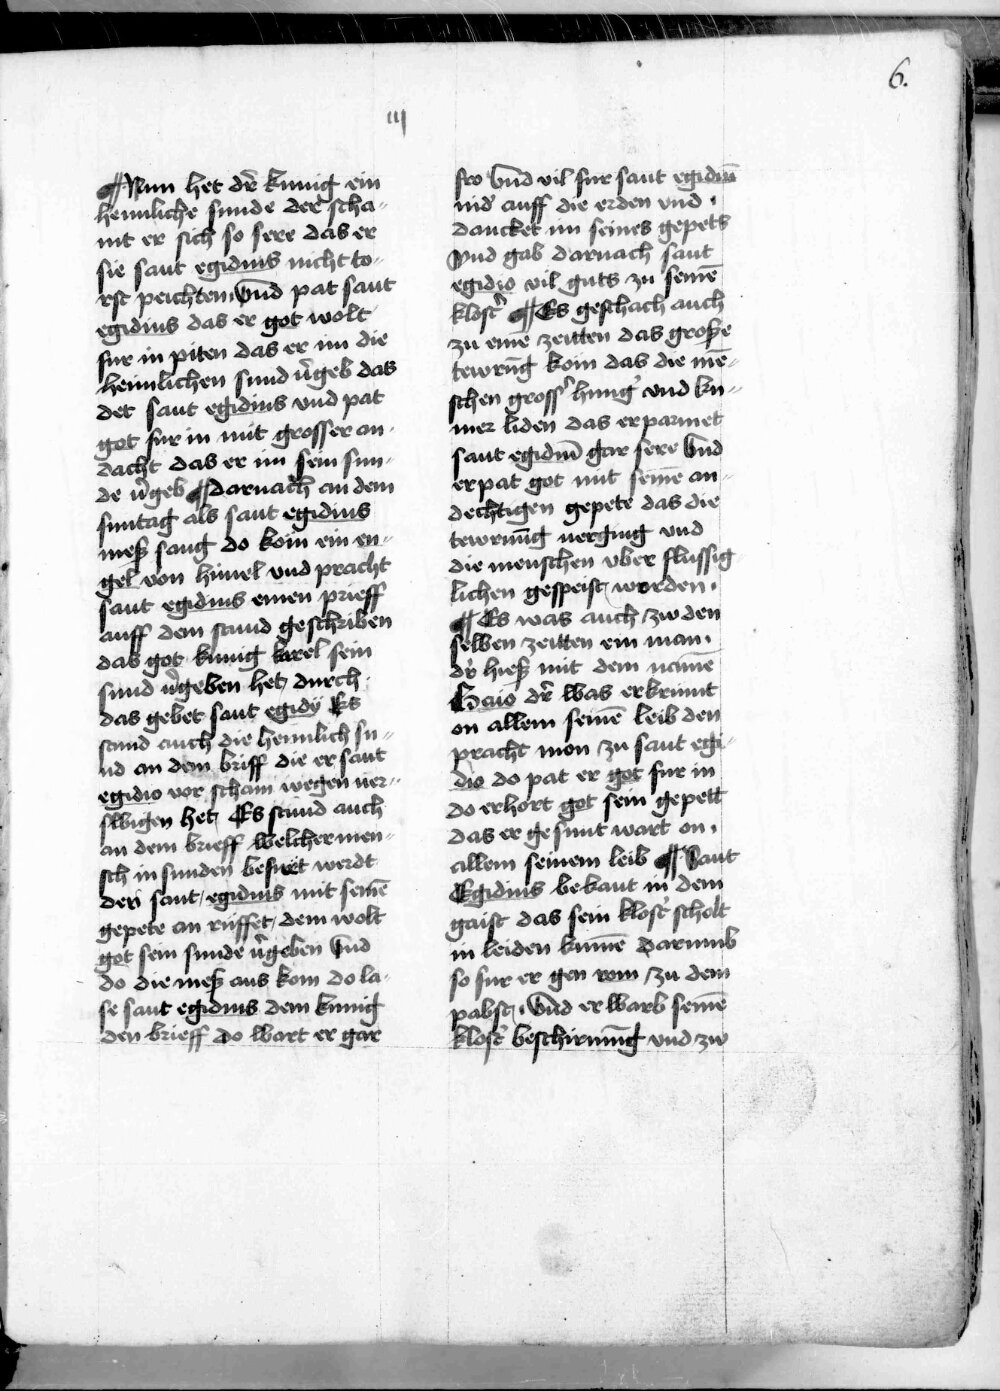 6.
iij
¶ Nun het dr̄ kunig ein
heimliche sunde der scha-
mt er sich so sere das er
sie sant egidius nicht to-
rst peichten Vnd pat sant
egidius das er got wolt
fur in piten das er im die
heimlichen sund v̄geb das
det sant egidius vnd pat
got fur in mit grosser an-
dacht das er im sein sun-
de v̄geb ¶ Darnach an dem
suntag als sant egidius
meß sang do kom ein en-
gel von himel vnd pracht
sant egidius einen prieff
auff dem stund geschriben
das got kunig karel sein
sund v̄geben het durch
das gebet sant egidÿ Es
stund auch die heimlich su-
nd an dem briff die er sant
egidio vor scham wegen ver-
swigen het Es stund auch
an dem brieff welcher men-
sch in sunden besweret werdt
der sant egidius mit seinē
gepete an rüffet dem wolt
got sein sunde v̄geben Vnd
do die meß aus kom do la-
se sant egidius dem kunig
den brieff do wart er gar
fro Vnd vil fur sant egidiū
nid̄ auff die erden vnd
dancket im seines gepets
Vnd gab darnach sant
egidio vil guts zu seinē
klost̄ ¶ Es geschach auch
zu eine zeitten das große
tewrūg kom das die mē-
schen gross̄ hunḡ vnd ku-
mer liden das erparmet
sant egidiū gar sere Vnd
er pat got mit seinē an-
dechtigen gepete das die
tewrūng verging vnd
die menschen vber flussig
lichen gespeist worden
¶ Es was auch zw den
selben zeitten ein man
dr̄ hieß mit dem namē
Gaio dr̄ was erkrumt
on allem seinē leib den
pracht mon zu sant egi-
dio do pat er got fur in
do erhort got sein gepett
das er gesunt wart on
allem seinem leib ¶ Sant
Egidius bekant in dem
gaist das sein klost̄ scholt
in leiden kumē Darumb
so fur er gen rom zu dem
pabst Vnd erwarb seinē
klost̄ beschirmūg vnd zw